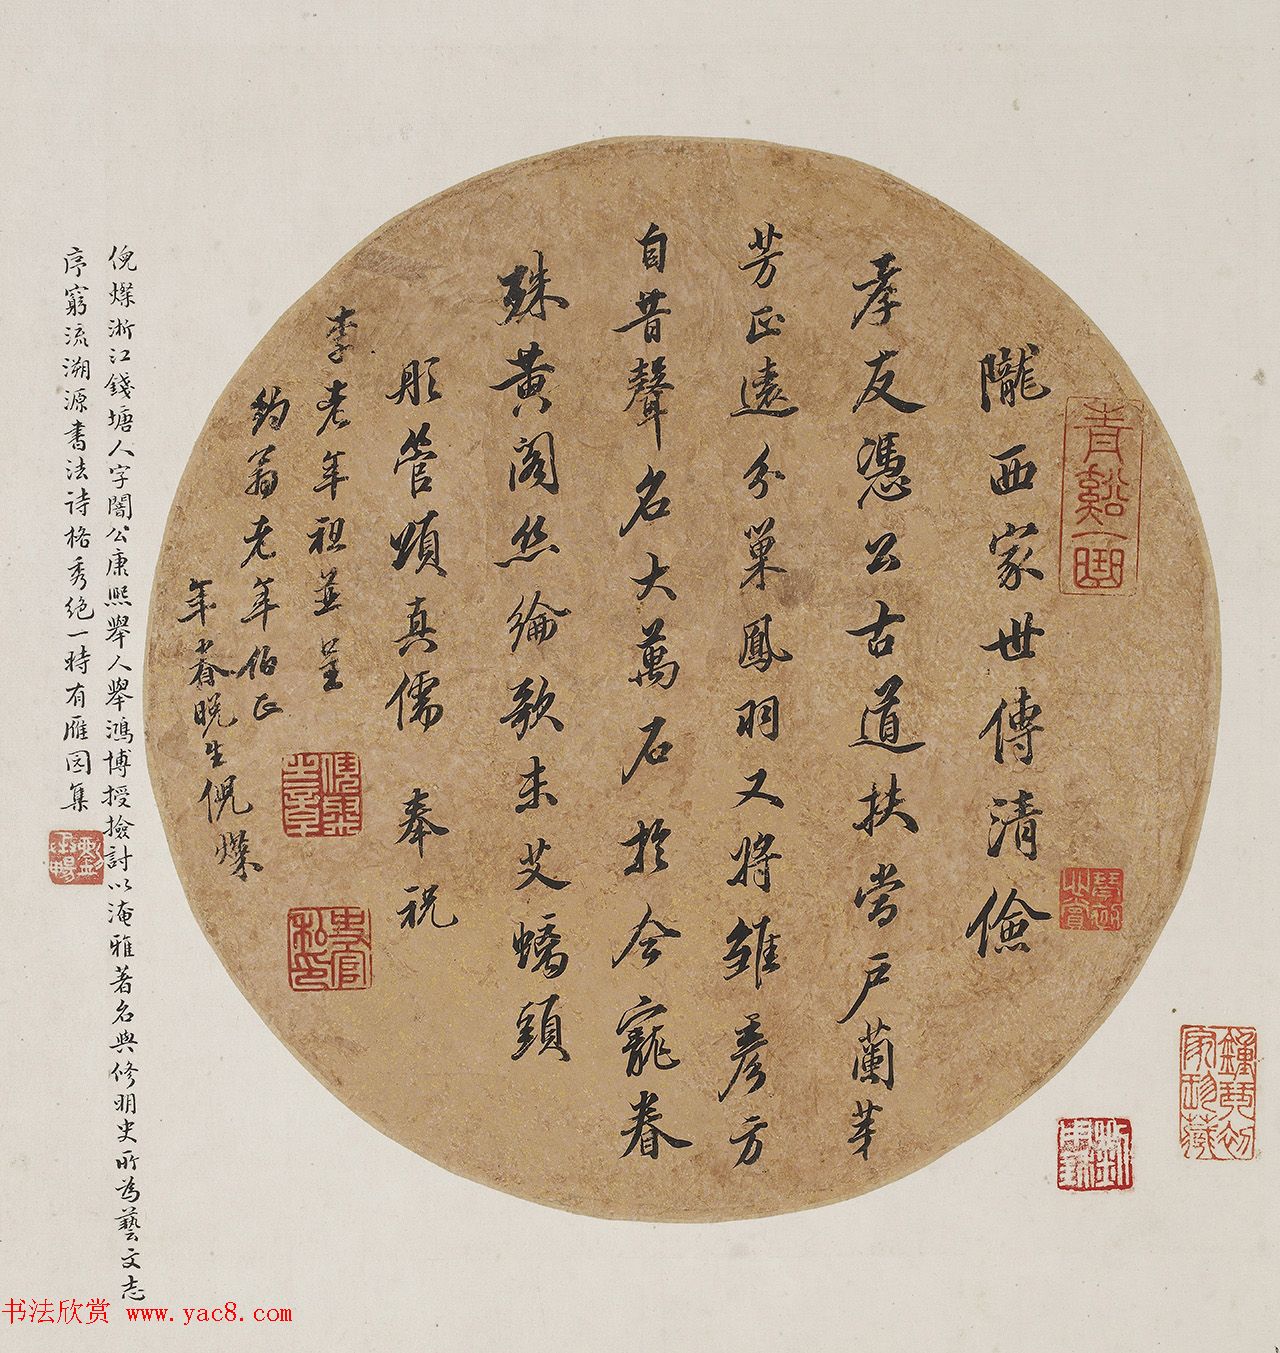 隴西家世傳清儉
孝友憑公古道扶當戶蘭芽
芳正遠分巢鳳羽又將雛彥方
自昔聲名大萬石於今寵眷
殊黃閣絲綸歌未艾螭頭
彤管頌真儒 奉祝
李老年祖臺呈
鈞翁老年伯正
年眷晚生倪燦
青谿一曲
倪燦
史官私印
倪燦浙江錢塘人字闇公康熙舉人舉鴻博授檢討以淹雅著名與修明史所為藝文志
序窮流溯源書法詩格秀絕一時有雁園集
鍾琴初家珍藏
书法欣赏 www.yac8.com